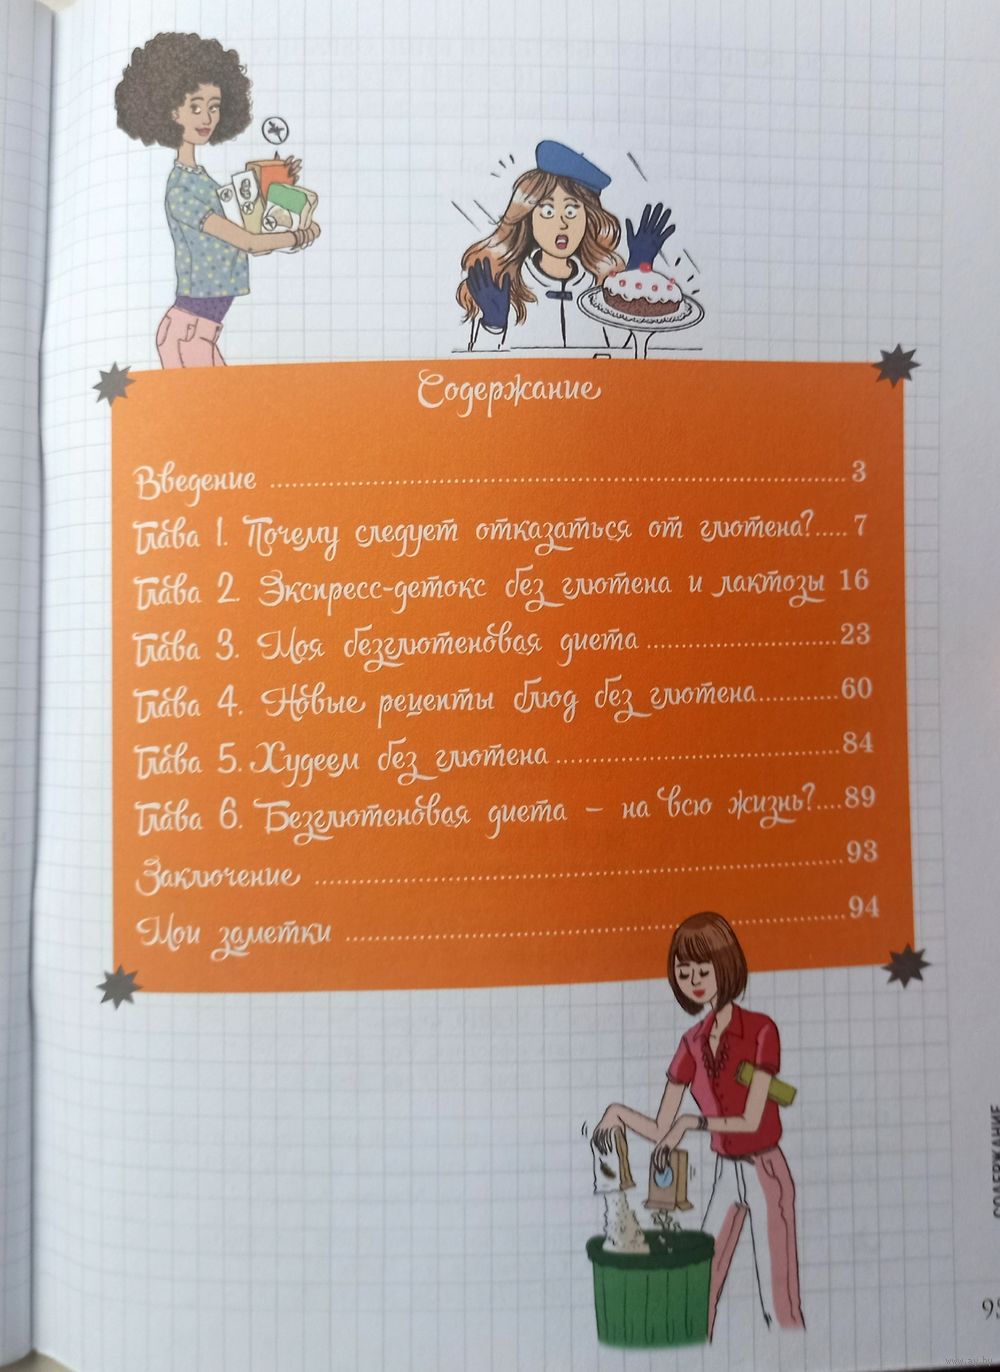 Содержание
Введение ........ 3
Глава 1. Почему следует отказаться от глютена?..... 7
Глава 2. Экспресс-детокс без глютена и лактозы 16
Глава 3. Моя безглютеновая диета ........ 23
Глава 4. Новые рецепты блюд без глютена........ 60
Глава 5. Худеем без глютена ........ 84
Глава 6. Безглютеновая диета – на всю жизнь?.... 89
Заключение ........ 93
Мои заметки ........ 94
СОДЕРЖАНИЕ